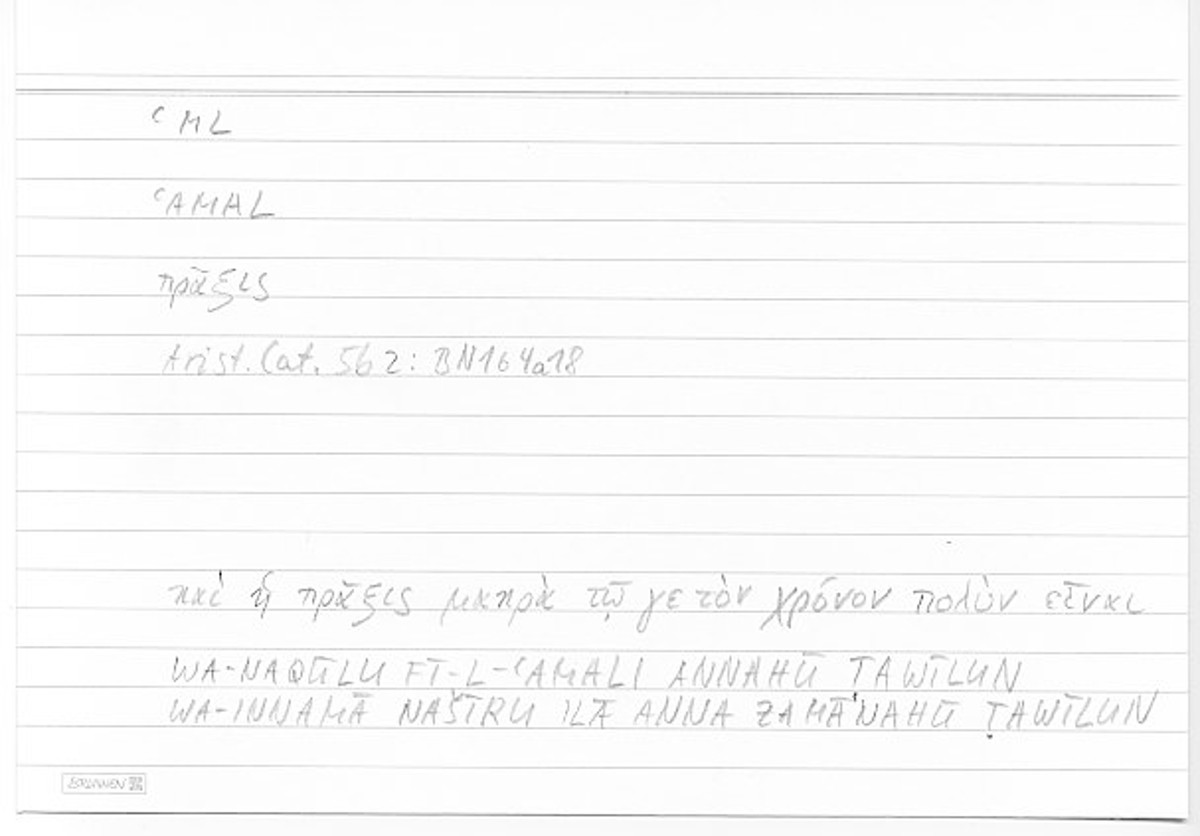 ʿML
ʿAMAL
πρᾶξις
Arist. Cat. 5b2: BN164a18
καὶ ἡ πρᾶξις μακρὰ τῷ γε τὸν χρόνον πολὺν εἶναι
WA-NAQŪLU FĪ-L-ʿAMALI ANNAHŪ TAWĪLUN
WA-INNAMĀ NAŠĪRU ILĀ ANNA ZAMĀNAHŪ ṬAWĪLUN
BRUNNEN